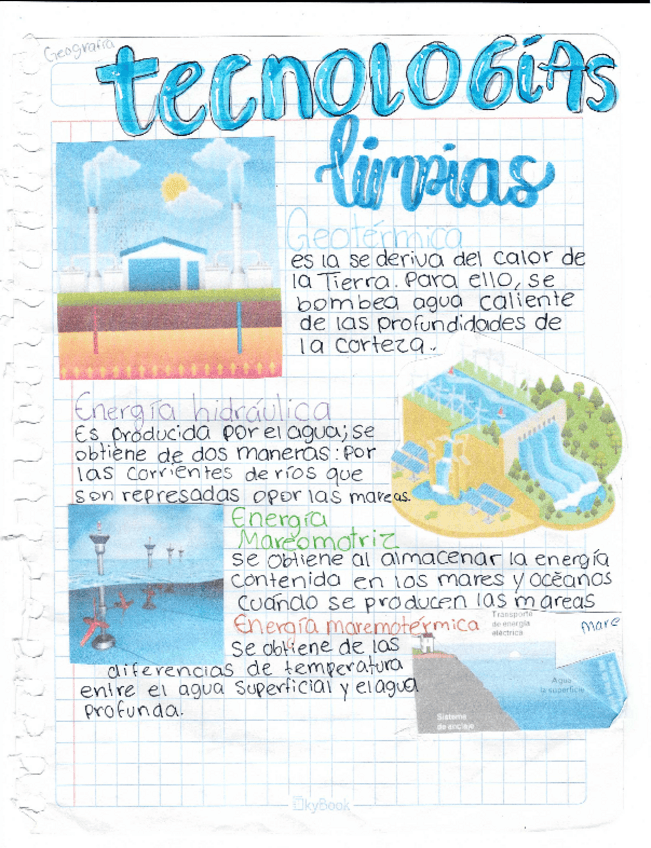 Geografía
tecnologías
limpias
Geotérmica
es la se deriva del calor de
la Tierra. Para ello, se
bombea agua caliente
de las profundidades de
la corteza.
Energía hidráulica
Es producida por el agua; se
obtiene de dos maneras: por
las corrientes de ríos que
son represadas o por las mareas.
Energía
Mareomotriz
se obtiene al almacenar la energía
contenida en los mares y océanos
cuando se producen las mareas
Energía maremotérmica
se obtiene de las
diferencias de temperatura
entre el agua superficial y el agua
profunda.
Transporte
de energía
eléctrica
Mare
Agua
la superficie
Sistema
de anclaje
SkyBook